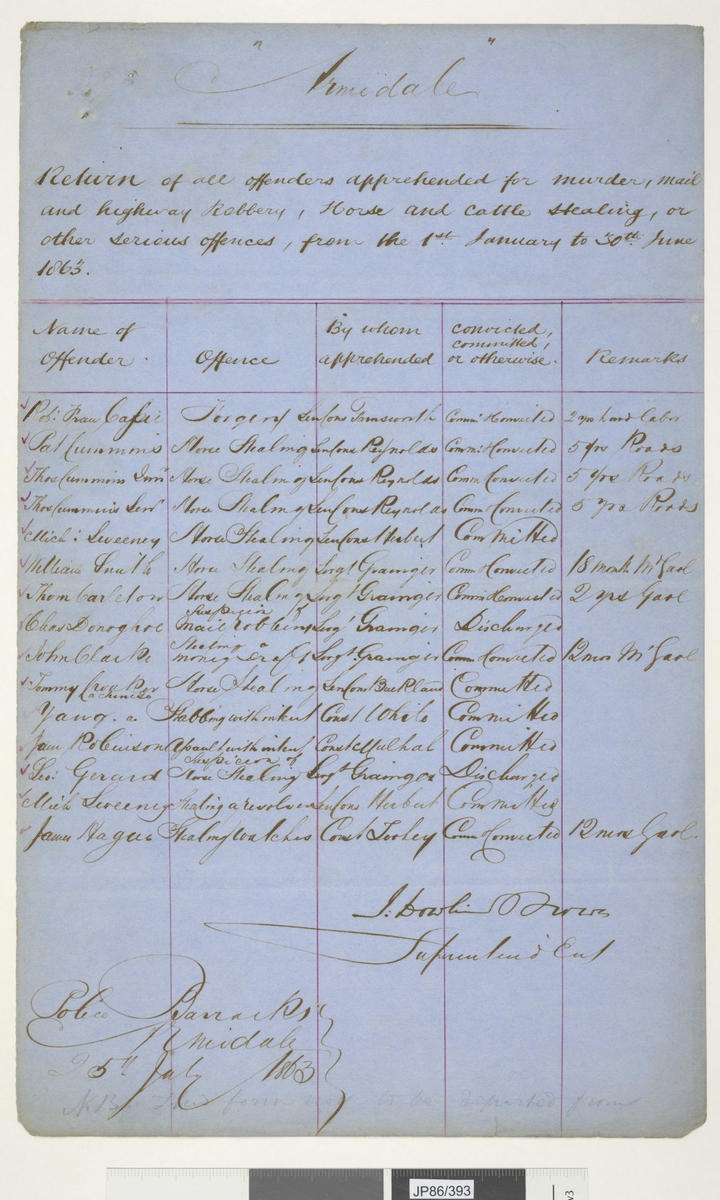 "Armidale"
Return of all offenders apprehended for murder, mail
and highway Robbery, Horse and cattle stealing, or
other serious offences, from the 1st January to 30th June
1863.
Name of Offender. Offence By whom apprehended convicted, committed, or otherwise. Remarks
Forgery Sen Cons Farnsworth Comm & Convicted 2 yrs hard labor
Pat Cummins Horse Stealing Sen Cons Reynolds Comm & Convicted 5 yrs Roads
Thos Cummins Junr Horse Stealing Sen Cons Reynolds Comm Convicted 5 yrs Roads
Thos Cummins Senr Horse Stealing Sen Cons Reynolds Comm Convicted 5 yrs Roads
Michl Sweeney Horse Stealing Sen Cons Herbert Committed
William Smith Horse Stealing Sergt Grainger Comm & Convicted 18 month Gaol
Thom Carleton Horse Stealing Sergt Grainger Comm & Convicted 2 yrs Gaol
Chas Donoghoe suspicion of mail robbing Sergt Grainger Discharged
John Clarke Stealing a money Draft Sergt Grainger Comm Convicted 12 mos Gaol
Tommy Horse Stealing Sen Cons Buckland Committed
Yang. a Chinese Stabbing with intent Const White Committed
Jam Robinson Assault with intent Const Mulhal Committed
Geo: Gerard Suspicion of Horse Stealing Sergt Grainger Discharged
Mich Sweeney Stealing a revolver Sen Cons Herbert Committed
James Hague Stealing Watches Const Toohey Comm & Convicted 12 mos Gaol.
Superintendent
Police Barracks
Armidale
25th July 1863
JP86/393